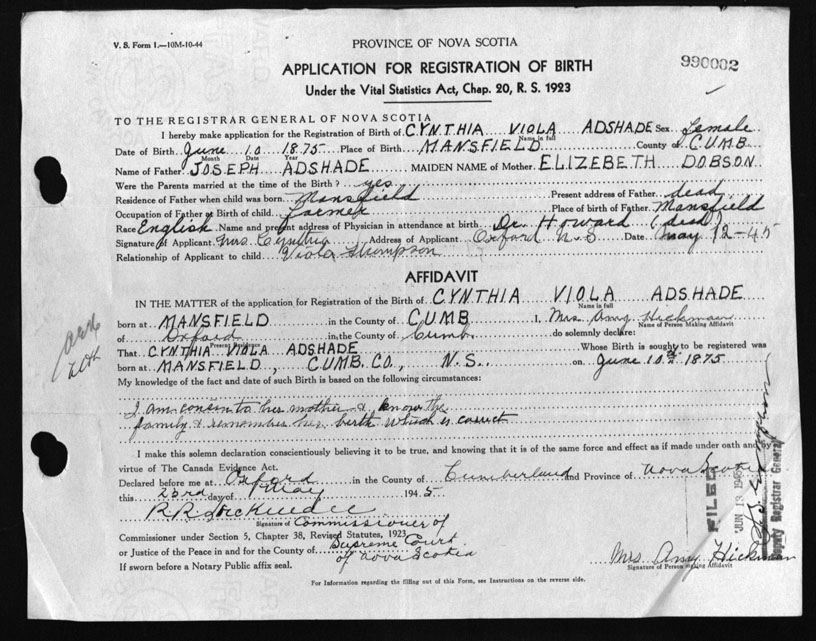 V. S. Form 1.—10M-10-44
PROVINCE OF NOVA SCOTIA
990002
APPLICATION FOR REGISTRATION OF BIRTH
Under the Vital Statistics Act, Chap. 20, R. S. 1923
TO THE REGISTRAR GENERAL OF NOVA SCOTIA
I hereby make application for the Registration of Birth of CYNTHIA VIOLA ADSHADE Sex Female
Name in full
Date of Birth June 10 1875 Place of Birth MANSFIELD County of CUMB
Month Date Year
Name of Father JOSEPH ADSHADE MAIDEN NAME of Mother ELIZEBETH DOBSON
Were the Parents married at the time of the Birth? yes
Residence of Father when child was born Mansfield Present address of Father dead
Occupation of Father at Birth of child farmer Place of birth of Father Mansfield
Race English Name and present address of Physician in attendance at birth Dr. Howard (dead)
Signature of Applicant Mrs. Cynthia Address of Applicant Oxford N.S Date May 12-45
Relationship of Applicant to child Viola Thompson
AFFIDAVIT
IN THE MATTER of the application for Registration of the Birth of CYNTHIA VIOLA ADSHADE
Name in full
born at MANSFIELD in the County of CUMB I, Mrs Amy Hickman
Name of Person Making Affidavit
of Oxford in the County of Cumb. do solemnly declare:
Present Residence
That CYNTHIA VIOLA ADSHADE Whose Birth is sought to be registered was
born at MANSFIELD, CUMB. CO., N.S. on June 10th 1875
My knowledge of the fact and date of such Birth is based on the following circumstances:
I am cousin to her mother & know the
family & remember her birth which is correct
I make this solemn declaration conscientiously believing it to be true, and knowing that it is of the same force and effect as if made under oath and by
virtue of The Canada Evidence Act.
Declared before me at Oxford in the County of Cumberland and Province of Nova Scotia
this 23rd day of May 1945
Signature of Commissioner of
Commissioner under Section 5, Chapter 38, Revised Statutes, 1923
or Justice of the Peace in and for the County of Supreme Court
of Nova Scotia
If sworn before a Notary Public affix seal.
Mrs. Amy Hickman
Signature of Person Making Affidavit
For Information regarding the filling out of this Form, see Instructions on the reverse side.
FILED
JUN 13 1945
Deputy Registrar General